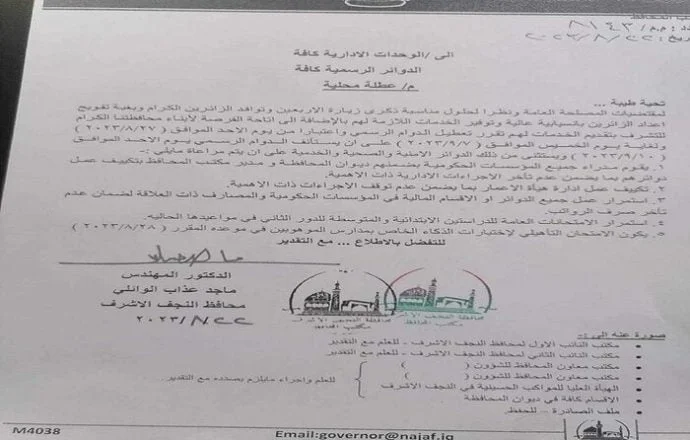 مكتب المحافظ
العدد: م.م/ ٨١٤٣
التاريخ: ٢٠٢٣/٨/٢٢
الى /الوحدات الادارية كافة
الدوائر الرسمية كافة
م/ عطلة محلية
تحية طيبة ...
لمقتضيات المصلحة العامة ونظرا لحلول مناسبة ذكرى زيارة الاربعين وتوافد الزائرين الكرام وبغية تفويج
اعداد الزائرين بانسيابية عالية وتوفير الخدمات اللازمة لهم بالإضافة الى اتاحة الفرصة لأبناء محافظتنا الكرام
للتشرف بتقديم الخدمات لهم تقرر تعطيل الدوام الرسمي واعتبارا من يوم الاحد الموافق ( ٢٠٢٣/٨/٢٧ )
ولغاية يوم الخميس الموافق ( ٢٠٢٣/٩/٧ ) على ان يستأنف الدوام الرسمي يوم الاحد الموافق
( ٢٠٢٣/٩/١٠ ) ويستثنى من ذلك الدوائر الامنية والصحية والخدمية على ان يتم مراعاة مايلي:-
١. يقوم مدراء جميع المؤسسات الحكومية بضمنهم ديوان المحافظة و مدير مكتب المحافظ بتكييف عمل
دوائرهم بما يضمن عدم تأخر الاجراءات الادارية ذات الاهمية.
٢. تكييف عمل ادارة هيأة الاعمار بما يضمن عدم توقف الاجراءات ذات الاهمية.
٣. استمرار عمل جميع الدوائر او الاقسام المالية في المؤسسات الحكومية والمصارف ذات العلاقة لضمان عدم
تأخر صرف الرواتب.
٤. استمرار الامتحانات العامة للدراستين الابتدائية والمتوسطة للدور الثاني في مواعيدها الحالية.
٥. يكون الامتحان التأهيلي لإختبارات الذكاء الخاص بمدارس الموهوبين في موعده المقرر ( ٢٠٢٣/٨/٢٨ )
للتفضل بالاطلاع ... مع التقدير
الدكتور المهندس
ماجد عذاب الوائلي
محافظ النجف الاشرف
٢٠٢٣/٨/٢٢
محافظة النجف الاشرف
مكتب المحافظ
محافظة النجف الاشرف
مكتب المحافظ
صورة عنه الى :-
مكتب النائب الاول لمحافظ النجف الاشرف – للعلم مع التقدير
مكتب النائب الثاني لمحافظ النجف الاشرف – للعلم مع التقدير
مكتب معاون المحافظ للشؤون ( )
مكتب معاون المحافظ للشؤون ( )
الهيأة العليا للمواكب الحسينية في النجف الاشرف
للعلم واجراء مايلزم بصدده مع التقدير
الاقسام كافة في ديوان المحافظة
ملف الصادرة – للحفظ
M4038
Email:governor@najaf.iq